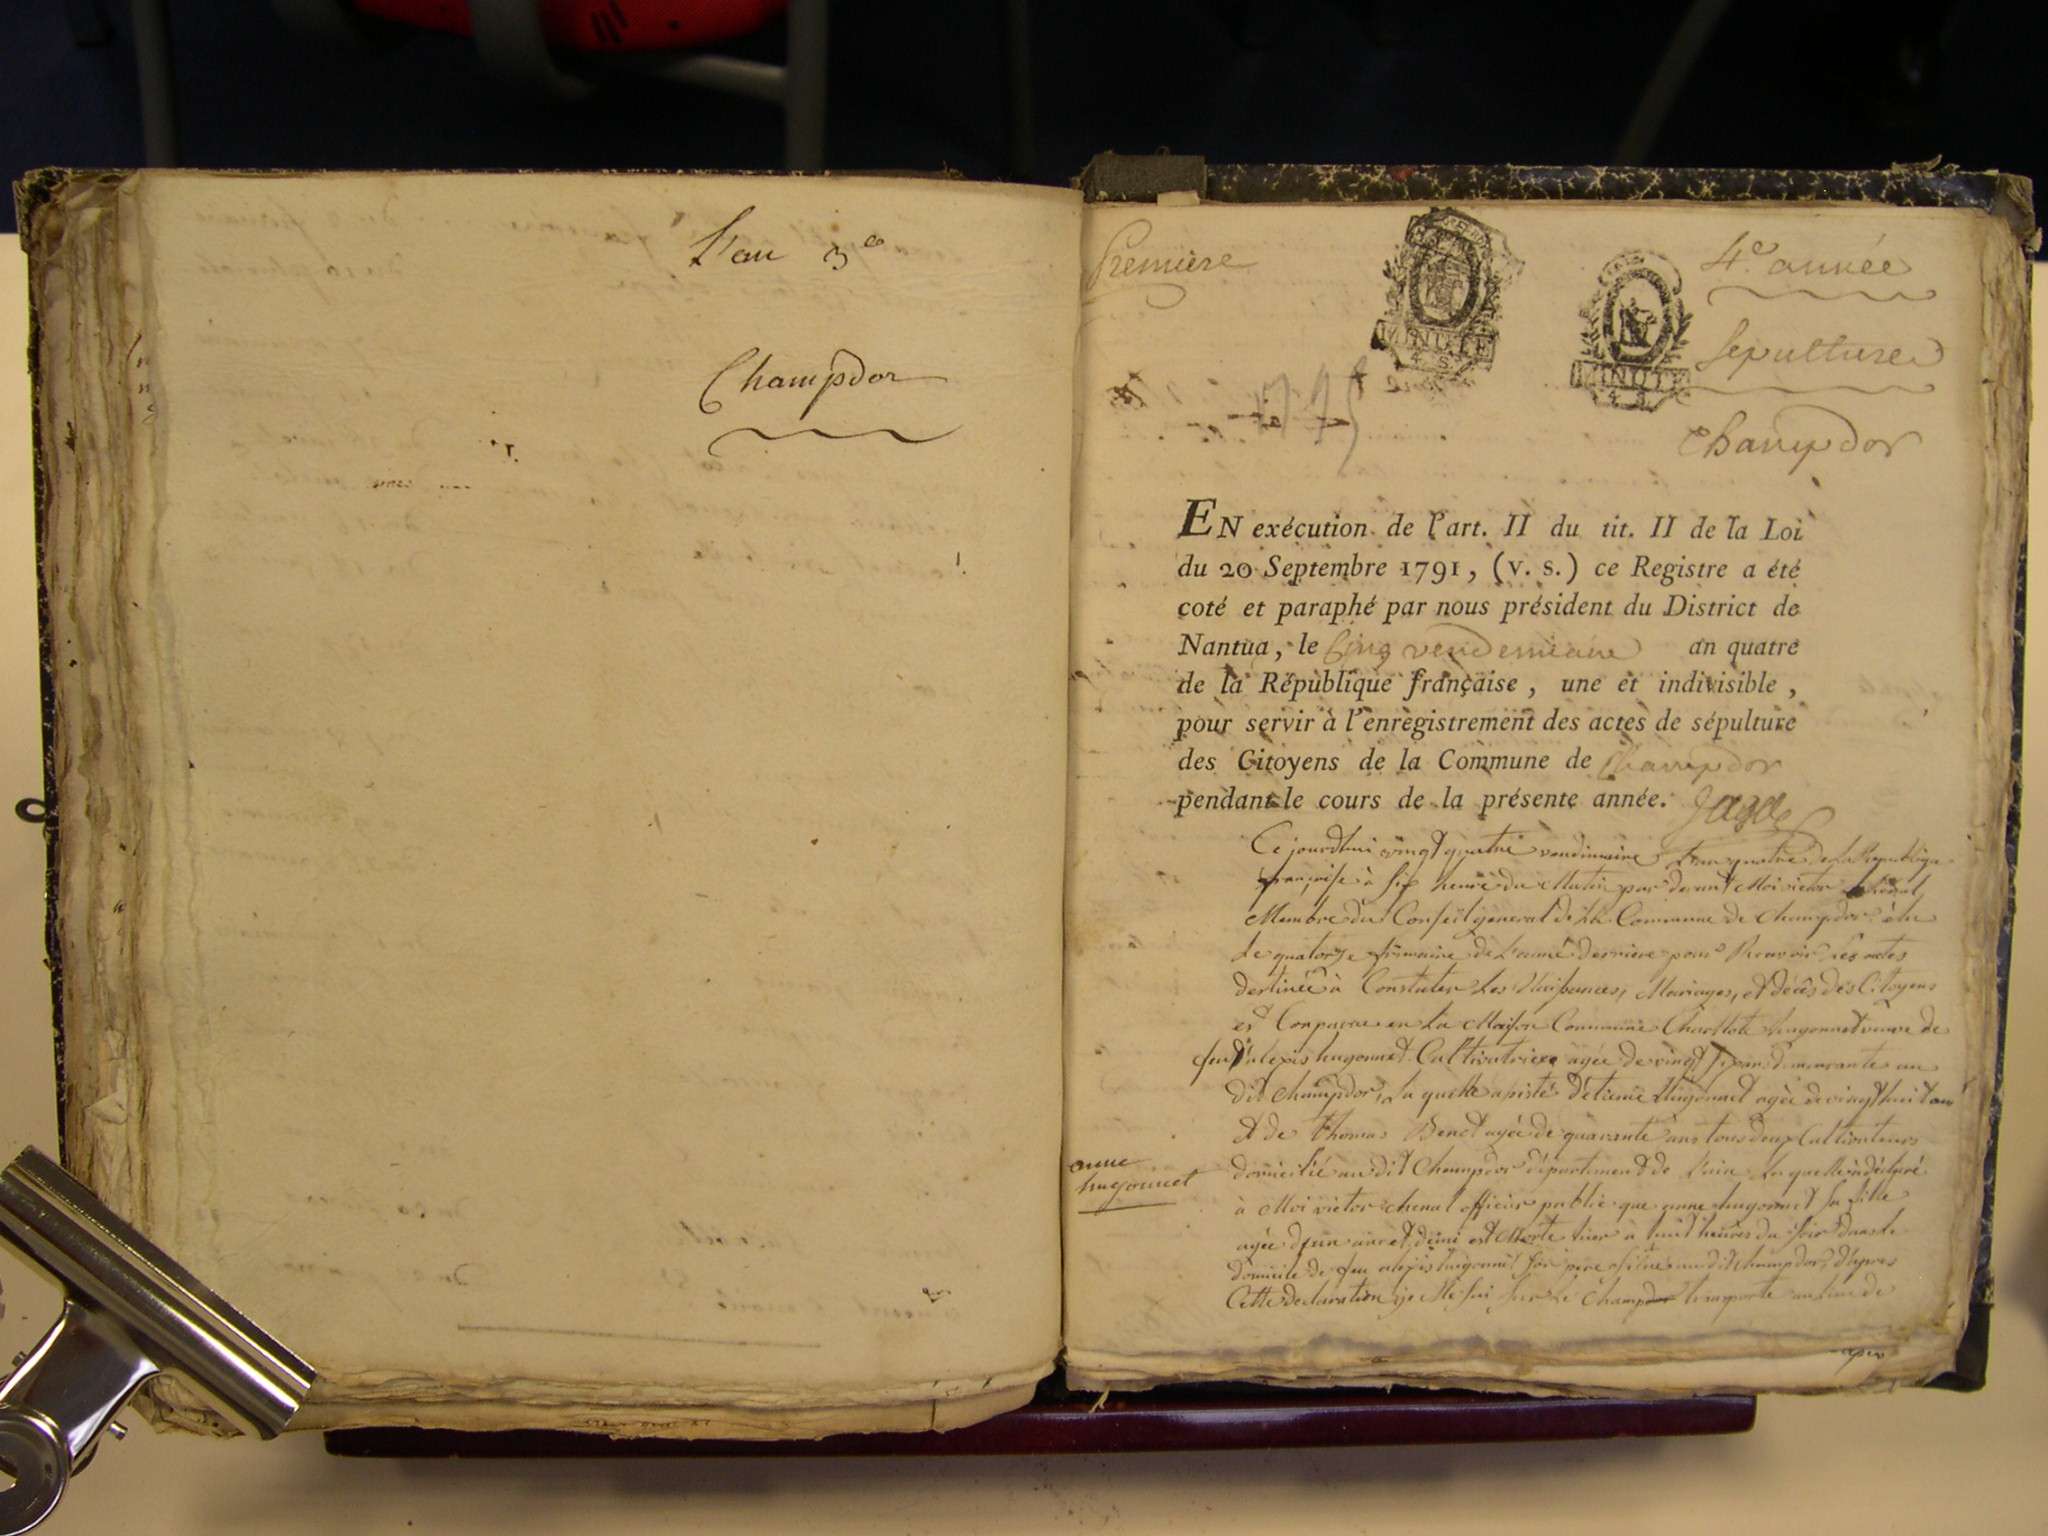 L'an 3e
Champdor
Premiere
4e année
Sepulture
Champdor
MINUTE
4 S
MINUTE
4 S
EN exécution de l'art. II du tit. II de la Loi
du 20 Septembre 1791, (v. s.) ce Registre a été
coté et paraphé par nous président du District de
Nantua, le Cinq vendemiaire an quatre
de la République française, une et indivisible,
pour servir à l'enregistrement des actes de sépulture
des Citoyens de la Commune de Champdor
pendant le cours de la présente année.
Ce jourdhui vingt quatre vendimiaire L'an quatre de La Republique
françoise à six heure du Matin par devant Moi victor chenal
Membre du Conseil general de La Commune de Champdor élu
Le quatorze frimaire de L'année derniere pour Recevoir Les actes
destinée à Constater Les Naissances, Mariages, et décès des Citoyens
est Comparue en La Maison Commune Charlote hugonnet veuve de
feu alexis hugonnet Cultivatrice agée de vingt six ans demeurante au
dit Champdor, La quelle assisté d'étienne Hugonnet agée de vingt huit ans
et de thomas Benet agée de quarante ans tous deux Cultivateurs
domicilié au dit Champdor département de L'ain La quelle à déclaré
à Moi victor chenal officier public que anne hugonnet sa fille
agée d'un an et demi est Morte hier à huit heures du soir dans le
domicile de feu alexis hugonnet son pere situé au dit Champdor d'apres
Cette declaration je Me sui sur Le Champ transporte au lieu de
anne
hugonnet